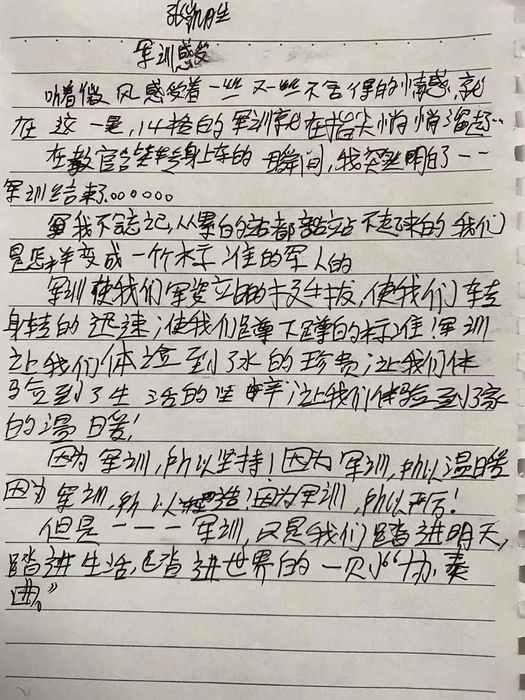 张凯胜
军训感发
哨着微风感发着一丝又一丝不舍得的情感,就
在这一是,14拾的军训就在指尖悄悄溜走…
在教官转身上车的一瞬间,我突然明白了一一
军训结束了。。。。。。
我不会忘记,从累的站都站不起来的我们
是怎样变成一个标准的军人的
军训使我们军姿立的挺拔,使我们转
身转的迅速;使我们蹲下蹲的标准!军训
让我们体会到了水的珍贵;让我们体
验到了生活的艰辛;让我们体验到了家
的温暖!
因为军训,所以坚持!因为军训,所以温暖
因为军训,所以!因为军训,所以严厉!
但是一一一军训,只是我们踏进明天,
踏进生活,踏进世界的一贝小“协奏
曲。”